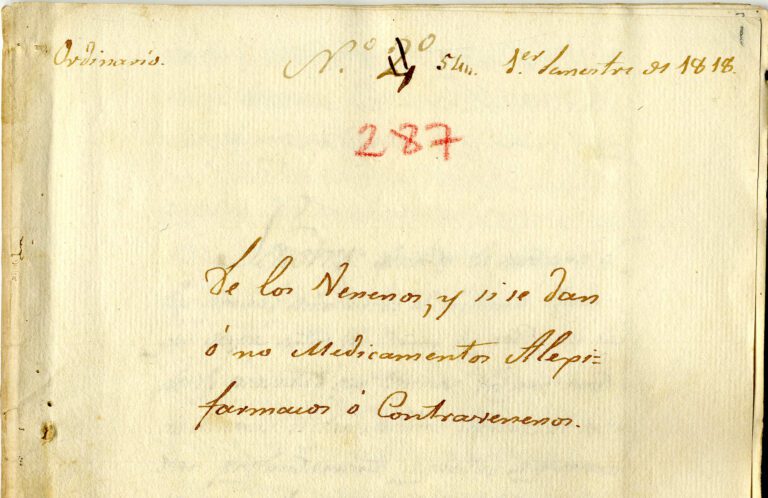 Ordinario. N.º 2º 1.er Semestre de 1818.
287
De los Venenos, y si se dan
ó no Medicamentos Alexi=
farmacos ó Contravenenos.